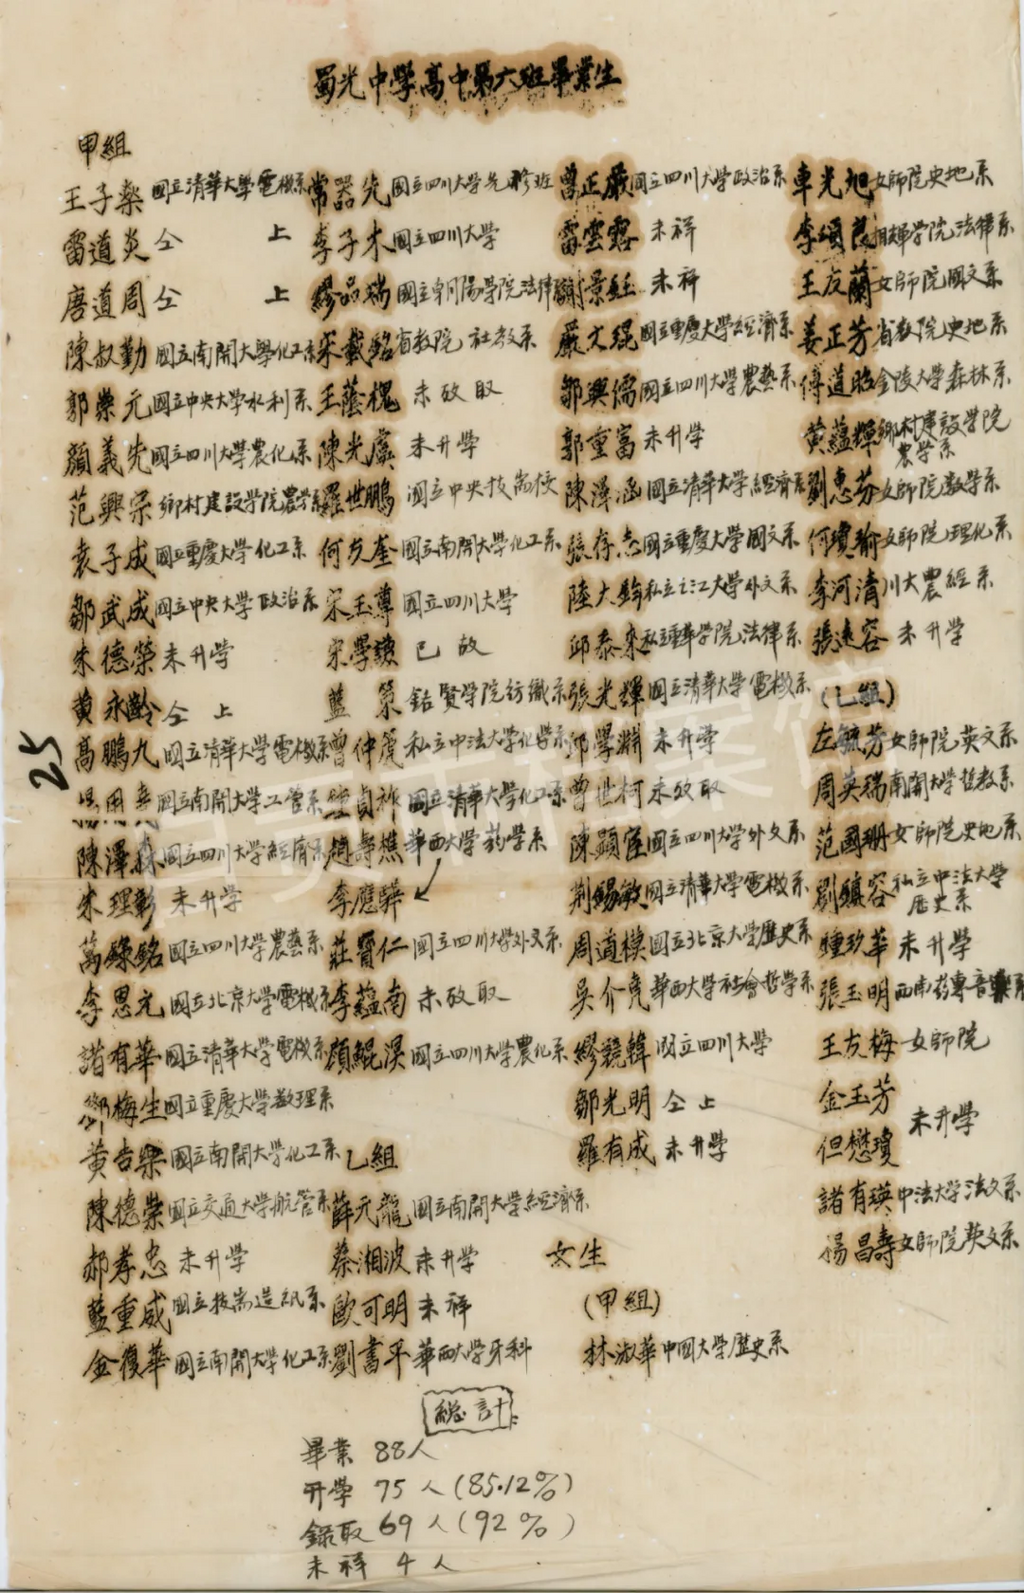 蜀光中学高中第六班畢業生
甲組
王子燊 國立清華大學電機系
雷道炎 仝 上
唐道周 仝 上
陳叔勤 國立南開大學化工系
郭崇元 國立中央大学水利系
顏義先 國立四川大学農化系
范興宗 鄉村建設学院農学系
袁子成 國立重慶大学化工系
鄒武成 國立中央大学政治系
朱德榮 未升學
黄永齡 仝 上
高鵬九 國立清華大学電機系
國立南開大学工管系
陳澤森 國立四川大学經濟系
朱理彰 未升学
萬錄銘 國立四川大学農藝系
李恩元 國立北京大学電機系
諸有華 國立清華大学電機系
鄧梅生 國立重慶大学数理系
黄吉樂 國立南開大学化工系
陳德榮 國立交通大学航管系
郝孝忠 未升学
藍重威 國立技崗造紙系
金復華 國立南開大学化工系
常器先 國立四川大学先修班
李子木 國立四川大学
繆品端 國立朝陽學院法律
宋載銘 省教院 社教系
王蔭槐 未攷取
陳光虞 未升学
羅世鵬 國立中央技崗校
何友奎 國立南開大学化工系
宋玉尊 國立四川大学
宋學謨 已故
藍 策 銘賢学院紡織系
曾仲篪 私立中法大学化学系
陸貞祚 國立清華大学化工系
趙壽樵 華西大学药学系
李應驊
莊寶仁 國立四川大学外文系
李蘊南 未攷取
顏鯤溟 國立四川大学農化系
乙組
薛元龍 國立南開大学經濟系
蔡湘波 未升学
歐可明 未祥
劉書平 華西大学牙科
曾正嚴 國立四川大学政治系
雷雲露 未祥
謝景鈺 未祥
嚴文琨 國立重慶大学經濟系
鄒興儒 國立四川大学農藝系
郭重富 未升学
陳澤涵 國立清華大学經濟系
張存志 國立重慶大学國文系
陸大鈞 私立之江大学外文系
邱泰來 私立華学院法律系
張光輝 國立清華大学電機系
邱學淵 未升學
曾世柯 未攷取
陳顯宦 國立四川大学外文系
荆錫敏 國立清華大学電機系
周道模 國立北京大学歷史系
吳介堯 華西大学社會哲學系
繆競韓 國立四川大學
鄒光明 仝上
羅有成 未升學
女生
(甲組)
林淑華 中國大学歷史系
車光旭 女師院史地系
李頌良 相輝学院法律系
王友蘭 女師院國文系
姜正芳 省教院史地系
傅道昭 金陵大学森林系
黄蘊輝 鄉村建設学院
農学系
劉惠芬 女師院数学系
何瓊瑜 女師院理化系
李河清 川大農經系
張遠容 未升学
(乙組)
左毓芳 女師院英文系
周英瑞 南開大学哲教系
范國珊 女師院史地系
劉鎮容 私立中法大学
歷史系
鍾玖華 未升学
張玉明 西南药專音樂系
王友梅 女師院
金玉芳
未升学
但懋瓊
諸有瑛 中法大学法文系
楊昌壽 女師院英文系
25
總計
畢業 88人
升學 75人(85.12%)
錄取 69人(92%)
未祥 4人